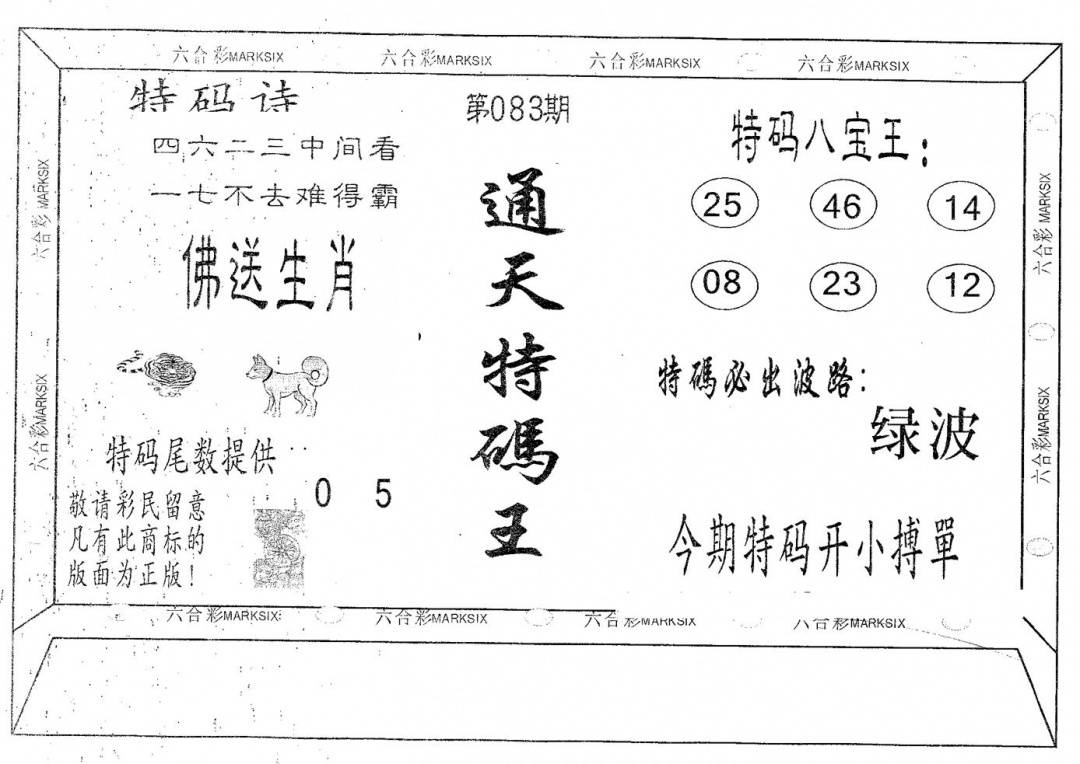 六合彩MARKSIX 六合彩MARKSIX 六合彩MARKSIX 六合彩MARKSIX
特码诗
四六二三中间看
一七不去难得霸
佛送生肖
特码尾数提供
0 5
敬请彩民留意
凡有此商标的
版面为正版!
第083期
通天特碼王
特码八宝王:
25 46 14
08 23 12
特碼必出波路:
绿波
今期特码开小搏單
六合彩MARKSIX
六合彩MARKSIX
六合彩MARKSIX
六合彩MARKSIX
六合彩MARKSIX 六合彩MARKSIX 六合彩MARKSIX 六合彩MARKSIX